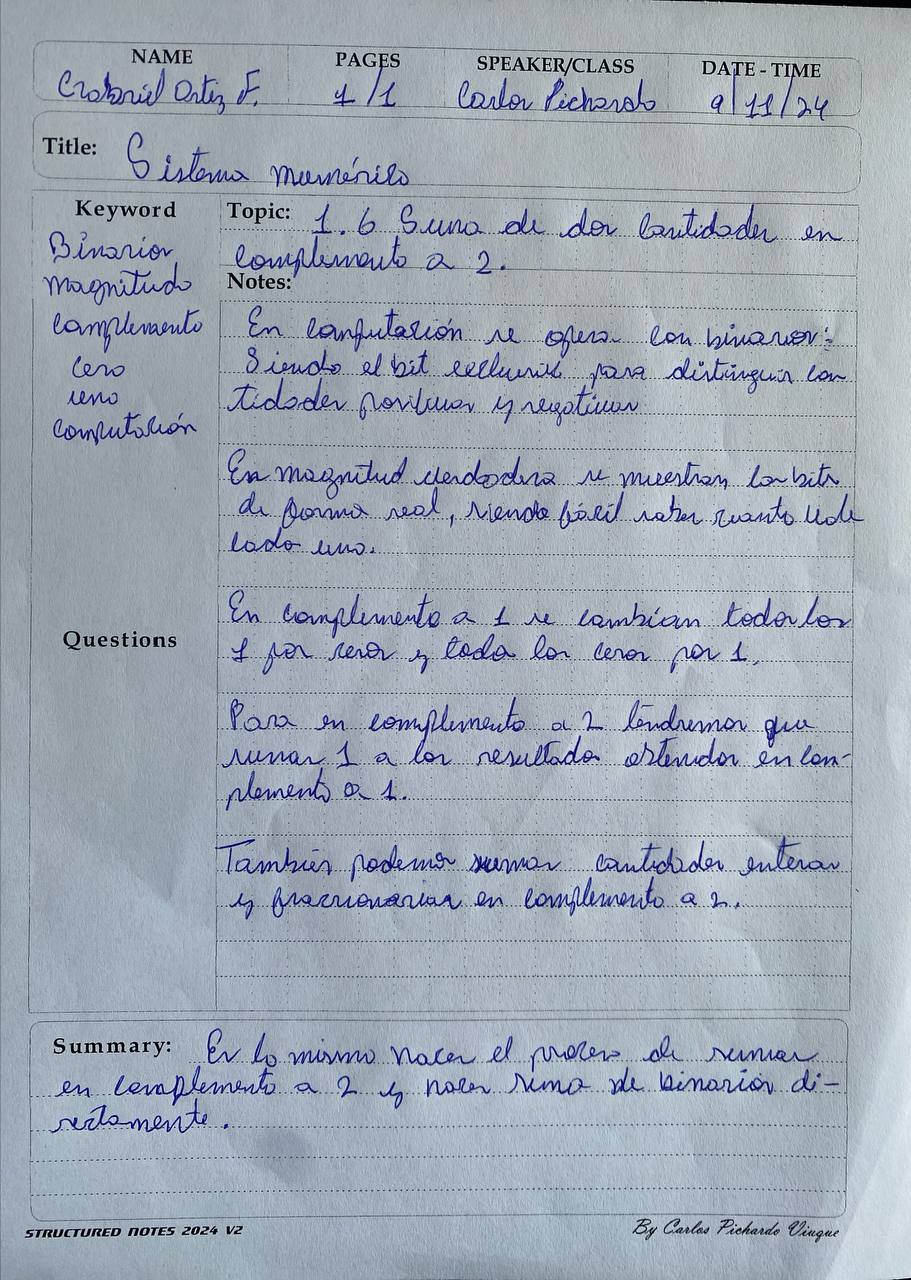 NAME PAGES SPEAKER/CLASS DATE - TIME
Gabriel Ortiz F. 1/1 Carlos Pichardo 9/11/24
Title: Sistema numérico
Keyword
Binarios
Magnitud
Complemento
Cero
uno
computación
Questions
Topic: 1.6 Suma de dos cantidades en
complemento a 2.
Notes:
En computación se opera con binarios:
Siendo el bit para distinguir can
tidades positivas y negativas
En magnitud verdadera se muestran los bits
de forma real, siendo fácil saber cuanto vale
cada uno.
En complemento a 1 se cambian todos los
1 por ceros y todo los ceros por 1.
Para en complemento a 2 tendremos que
sumar 1 a los resultados obtenidos en com-
plemento a 1.
También podemos sumar cantidades enteras
y fraccionarias en complemento a 2.
Summary: Es lo mismo hacer el proceso de sumar
en complemento a 2 y hacer suma de binarios di-
rectamente.
STRUCTURED NOTES 2024 V2
By Carlos Pichardo Viuque